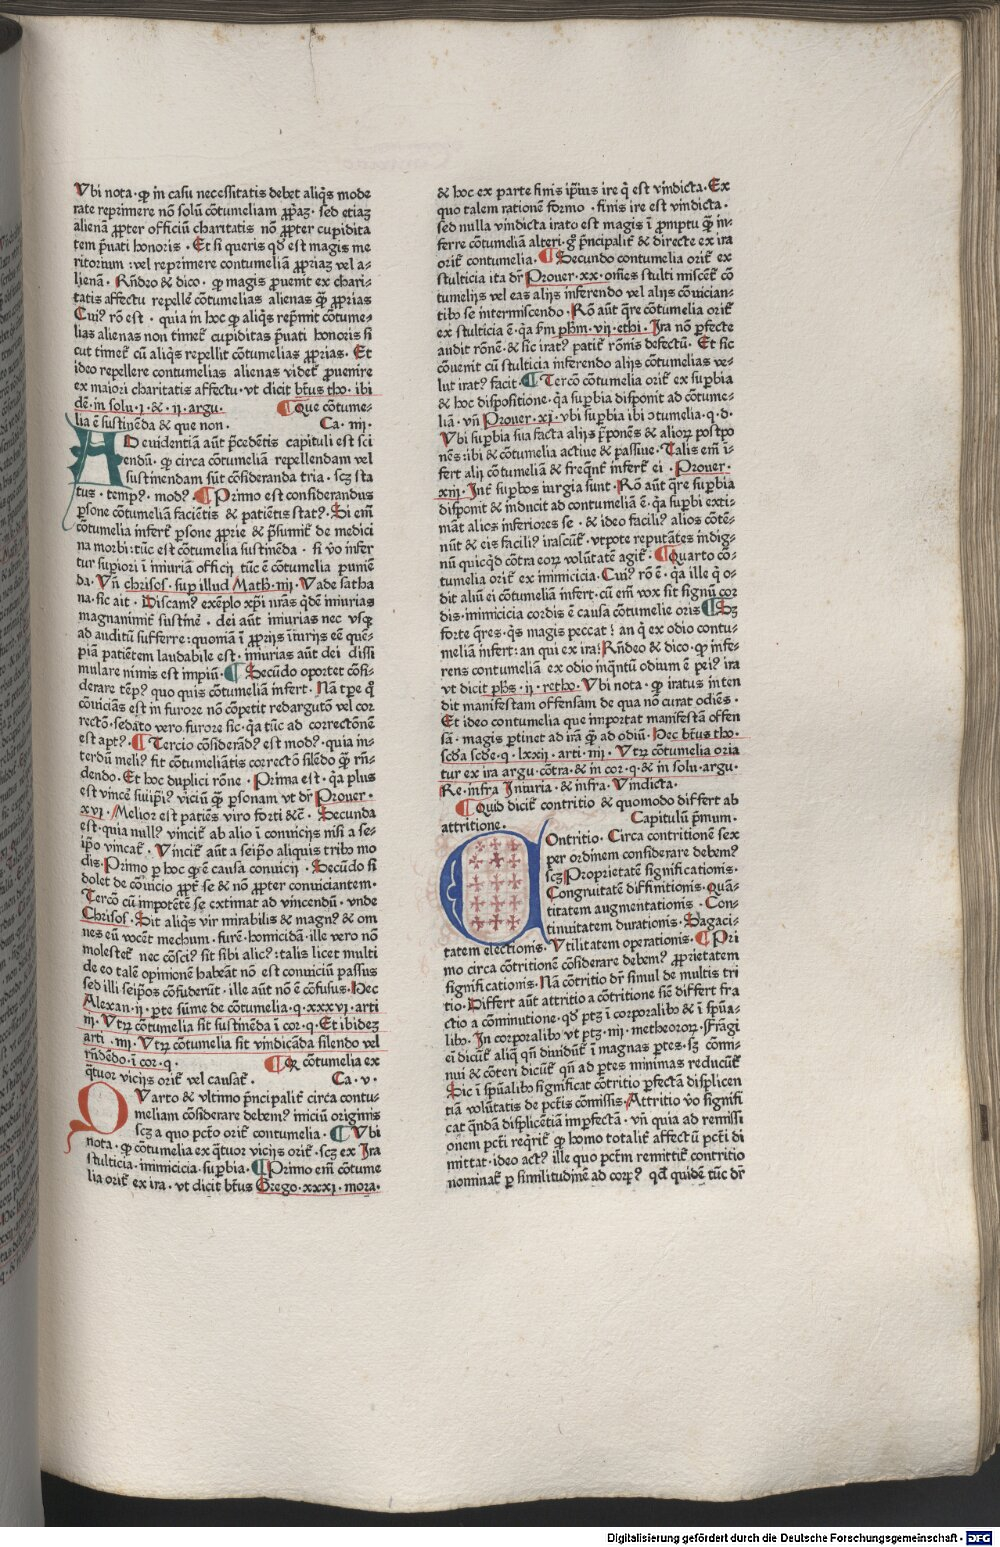 Vbi nota· ꝙ in casu necessitatis debet aliq̃s mode
rate reprimere nõ solũ cõtumeliam ꝓpriaʒ· sed etiaʒ
alienã ꝓpter officiũ charitatis nõ ꝓpter cupidita
tem p̃uati honoris · Et si queris qd̕ est magis me
ritorium : vel reprimere contumeliã ꝓpriaʒ vel a-
lienã · Rñdeo & dico· ꝙ magis ꝓuenit ex chari-
tatis affectu repellẽ cõtumelias alienas q̃ꝫ ꝓprias
Cuiꝰ rõ est · quia in hoc ꝙ aliq̃s rep̃mit cõtume-
lias alienas non timet᷑ cupiditas p̃uati honoris si
cut timet᷑ cũ aliq̃s repellit cõtumelias ꝓprias· Et
ideo repellere contumelias alienas videt᷑ ꝓuenire
ex maiori charitatis affectu· vt dicit bt̃us tho· ibi
dẽ· in solu· j· & · ij· argu· ¶ Que cõtume-
lia ẽ sustinẽda & que non · Ca· iiij·
AD euidentiã aũt p̃cedẽtis capituli est sci
endũ· ꝙ circa cõtumeliã repellendam vel
sustinendam sũt cõsideranda tria· scʒ sta
tus· tempꝰ· modꝰ· ¶ Primo est considerandus
ꝑsone cõtumeliã faciẽtis & patiẽtis statꝰ· Si em̃
cõtumelia infert᷑ ꝑsone ꝓprie & p̃sumit᷑ de medici
na morbi: tũc est cõtumelia sustinẽda · si v̊o infer
tur suꝑiori ĩ iniuriã officij tũc ẽ cõtumelia puniẽ
da· Vñ chrisos· suꝑ illud Math· iiij· Vade satha
na· sic ait · Discamꝰ exẽplo xp̃i nr̃as q̃dẽ iniurias
magnanimit᷑ sustinẽ· dei aũt iniurias nec vsqꝫ
ad auditũ sufferre: quoniã ĩ ꝓprijs iniurijs eẽ quẽ-
piã patiẽtem laudabile est· iniurias aũt dei dissi
mulare nimis est impiũ· ¶ Secũdo oportet cõsi-
derare tẽpꝰ quo quis cõtumeliã infert· Nã tꝑe q̊
cõuiciãs est in furore nõ cõpetit redargutõ vel cor
rectõ· sedato vero furore sic· q̃a tũc ad correctõnẽ
est aptꝰ· ¶ Tercio cõsiderãdꝰ est modꝰ· quia in-
terdũ meliꝰ fit cõtumeliãtis correctõ silẽdo q̃ꝫ rñ-
dendo· Et hoc duplici rõne· Prima est· q̃a plus
est vincẽ suiip̃iꝰ viciũ q̃ꝫ ꝑsonam vt dr̃ Prouer·
xvi· Melior est patiẽs viro forti &c̃· Secunda
est· quia nullꝰ vincit᷑ ab alio ĩ conuicijs nisi a se-
ip̃o vincat᷑· Vincit᷑ aũt a seip̃o aliquis tribꝰ mo
dis· Primo ꝑ hoc ꝙ ẽ causa conuicij · Secũdo si
dolet de cõuicio ꝓpt᷑ se & nõ ꝓpter conuiciantem·
Tercõ cũ impotẽtẽ se extimat ad vincendũ· vnde
Chrisos· Sit aliq̃s vir mirabilis & magnꝰ & om
nes eũ vocẽt mechum· furẽ· homicidã· ille vero nõ
molestet᷑ nec cõsciꝰ sit sibi alicꝰ: talis licet multi
de eo talẽ opinionẽ habeãt nõ est conuiciũ passus
sed illi seip̃os cõfuderũt· ille aũt nõ ẽ cõfusus· Hec
Alexan· ij· ꝑte sũme de cõtumelia· q· xxxvi· arti
iij· Vtrꝫ cõtumelia sit sustinẽda ĩ cor· q· Et ibideʒ
arti · iiij· Vtrꝫ cõtumelia sit vindicãda silendo vel
rñdẽdo· ĩ cor· q· ¶ Qꝫ cõtumelia ex
q̃tuor vicijs orit᷑ vel causat᷑· Ca· v·
QVarto & vltimo p̃ncipalit᷑ circa contu-
meliam cõsiderare debemꝰ iniciũ originis
scʒ a quo pctõ orit᷑ contumelia· ¶ Vbi
nota· ꝙ cõtumelia ex q̃tuor vicijs orit᷑· scʒ ex Ira
stulticia· inimicicia· suꝑbia· ¶ Primo em̃ cõtume
lia orit᷑ ex ira· vt dicit bt̃us Grego· xxxi· mora·
& hoc ex parte finis ip̃ius ire q̃ est vindicta· Ex
quo talem rationẽ formo · finis ire est vindicta·
sed nulla vindicta irato est magis ĩ ꝓmptu q̃ꝫ in-
ferre cõtumeliã alteri· g̊ p̃ncipalit᷑ & directe ex ira
orit᷑ contumelia· ¶ Secundo contumelia orit᷑ ex
stulticia ita dr̃ Prouer· xx· om̃es stulti miscẽt᷑ cõ
tumelijs vel eas alijs inferendo vel alijs cõuician-
tibꝰ se intermiscendo· Rõ aũt q̃re cõtumelia orit᷑
ex stulticia ẽ· q̃a ẜm pħm· vij· ethi· Ira nõ ꝑfecte
audit rõnẽ· & sic iratꝰ patit᷑ rõnis defectũ· Et sic
cõuenit cũ stulticia inferendo alijs cõtumelias ve-
lut iratꝰ facit· ¶ Tercõ cõtumelia orit᷑ ex suꝑbia
& hoc dispositione· q̃a suꝑbia disponit ad cõtume-
liã· vñ Prouer· xi· vbi suꝑbia ibi ɔtumelia· q· d·
Vbi suꝑbia sua facta alijs p̃ponẽs & alioꝝ postpo
nẽs: ibi & cõtumelia actiue & passiue· Talis em̃ ĩ-
fert alij cõtumeliã & freq̃nt᷑ infert᷑ ei · Prouer·
xiij· Int᷑ suꝑbos iurgia sunt· Rõ aũt q̃re suꝑbia
disponit & inducit ad contumeliã ẽ· q̃a suꝑbi exti-
mãt alios inferiores se · & ideo faciliꝰ alios cõtẽ-
nũt & eis faciliꝰ irascũt᷑· vtpote reputãtes indig-
nũ quicq̃d cõtra eoꝝ volũtatẽ agit᷑· ¶ Quarto cõ-
tumelia orit᷑ ex inimicicia· Cuiꝰ rõ ẽ· q̃a ille q̃ o-
dit aliũ ei cõtumeliã infert· cũ em̃ vox sit signũ cor
dis· inimicicia cordis ẽ causa cõtumelie oris ¶ Sʒ
forte q̃res· q̃s magis peccat? an q̃ ex odio contu-
meliã infert: an qui ex ira? Rñdeo & dico· ꝙ infe-
rens contumeliã ex odio inq̃ntũ odium ẽ peiꝰ ira
vt dicit pħs· ij· retho· Vbi nota· ꝙ iratus inten
dit manifestam offensam de qua nõ curat odiẽs·
Et ideo contumelia que importat manifestã offen
sã· magis ꝑtinet ad irã q̃ꝫ ad odiũ· Hec bt̃us tho·
scđa scđe· q· lxxij· arti· iiij· Vtrꝫ cõtumelia oria
tur ex ira argu· cõtra· & in cor· q· & in solu· argu·
Re· infra Iniuria· & infra· Vindicta·
¶ Quid dicit᷑ contritio & quomodo differt ab
attritione· Capitulũ p̃mum·
COntritio· Circa contritionẽ sex
per ordinem considerare debemꝰ
scʒ Proprietatẽ significationis·
Congruitatẽ diffinitionis· Quã-
titatem augmentationis· Con-
tinuitatem durationis· Sagaci-
tatem electionis· Vtilitatem operationis· ¶ Pri
mo circa cõtritionẽ cõsiderare debemꝰ ꝓprietatem
significationis· Nã cõtritio dr̃ simul de multis tri
tio· Differt aũt attritio a cõtritione siẽ differt fra
ctio a cõminutione· qd̕ ptʒ ĩ corporalibꝰ & ĩ sp̃ua-
libꝰ· In corporalibꝰ vt ptʒ· iiij· metheoroꝝ· Frãgi
ei dicũt᷑ aliq̃ qñ diuidũt᷑ ĩ magnas ꝑtes· sʒ cõmi-
nui & cõteri dicũt᷑ qñ ad ꝑtes minimas reducũt᷑
Sic ĩ sp̃ualibꝰ significat cõtritio ꝑfectã displicen
tiã volũtatis de pctĩs cõmissis· Attritio v̊o signifi
cat q̃ndã displicẽtiã imꝑfectã· vñ quia ad remissi
onem pctĩ req̃rit᷑ ꝙ homo totalit᷑ affectũ pctĩ di
mittat· ideo actꝰ ille quo pctm̃ remittit᷑ contritio
nominat᷑ ꝑ similitudinẽ ad corpꝰ qđ quidẽ tũc dr̃
Digitalisierung gefördert durch die Deutsche Forschungsgemeinschaft - DFG